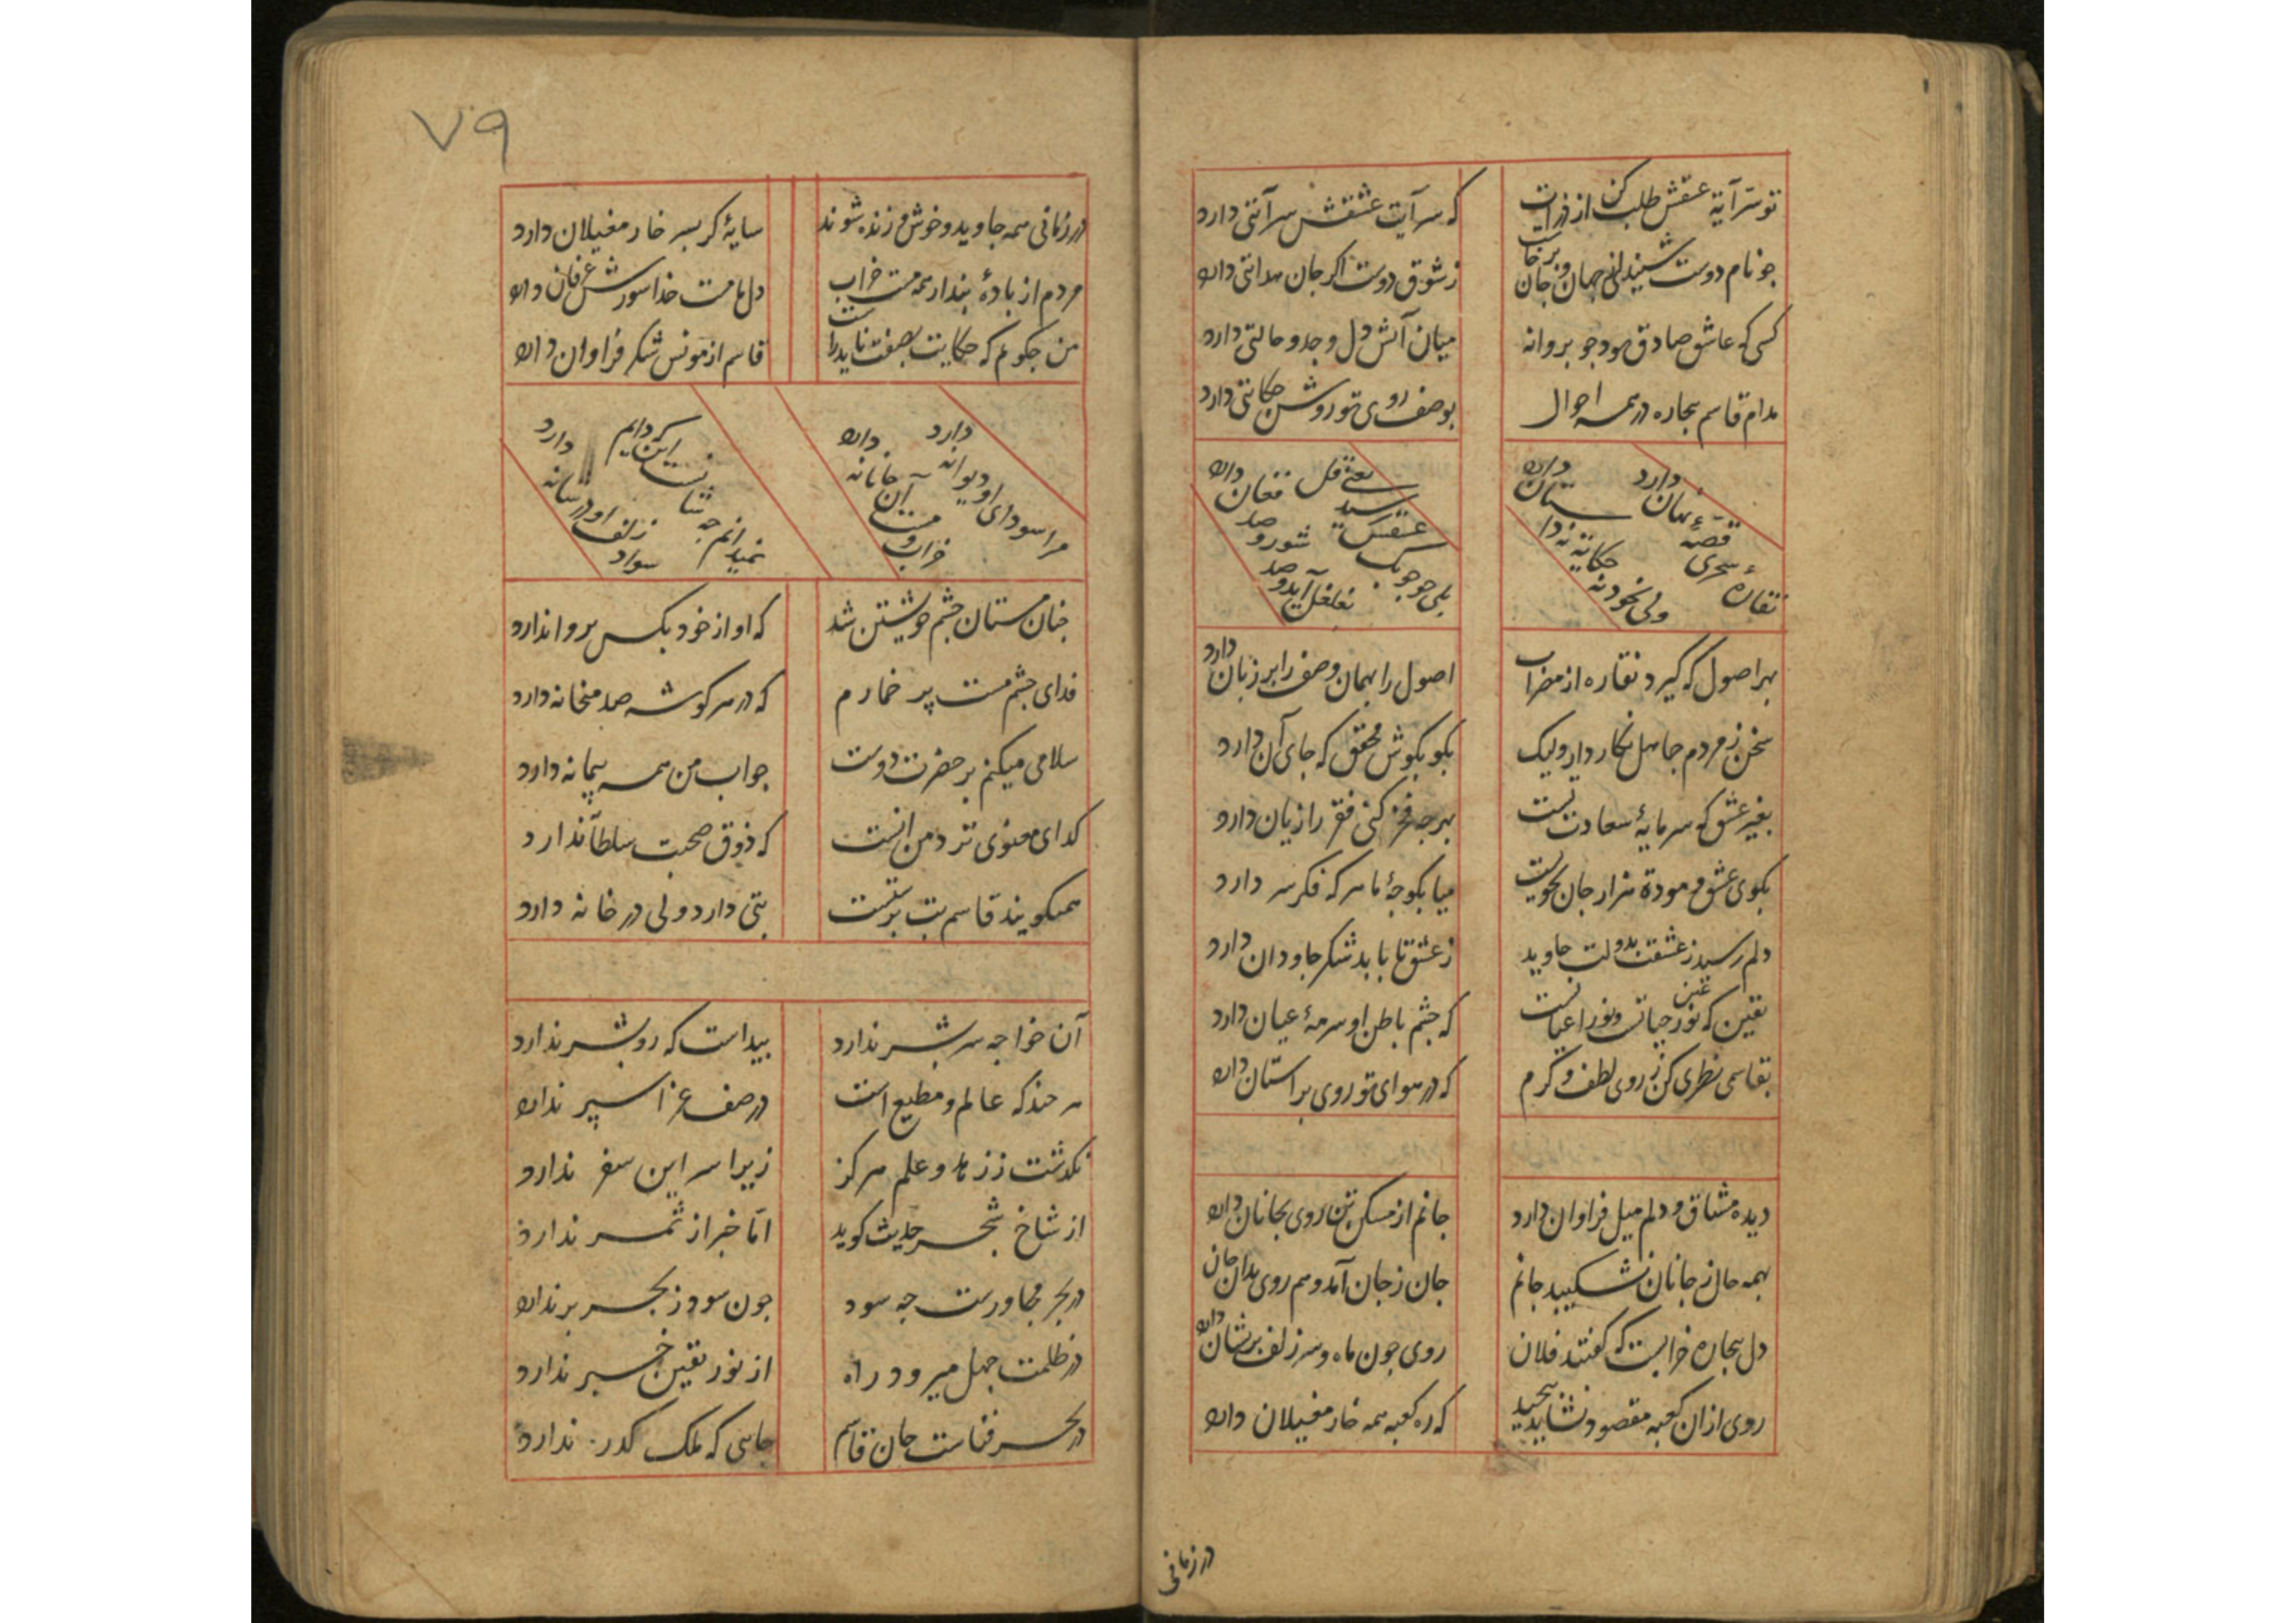 تو سرّ آیة عشقش طلب کن از ذرات
که سرآیت عشقش سرآیتی دارد
جو نام دوست شنیدلی جهان و جان برخاست
ز شوق دوست اکر جان هدایتی دارد
کسی که عاشق صادق بود جو بروانه
میان آتش دل وجد و حالتی دارد
مدام قاسم بیجاره در همه احوال
بوصف روی تو روشن حکایتی دارد
نقارهٔ سحری قصهٔ نهان دارد
ولی نخود نه حکایة نه داستان دارد
بلی جو جوبک عشقش رسید یعنی قل
بغلغل آید و صد شور و صد فغان دارد
بهر اصول که کیرد نقاره از مضراب
اصول را بهمان وصف را بر زبان دارد
سخن ز مردم جاهل نکاه دار ولیک
بکو بکوش محقق که جای آن دارد
بغیر عشق که سرمایهٔ سعادت نیست
بهرجه فخر کنی فقر را زیان دارد
بکوی عشق و مودة هزار جان بجویست
میا بکوجهٔ ما هر که فکر سر دارد
دلم رسید ز عشقت بدولت جاوید
ز عشق تا بابد شکر جاودان دارد
یقین که نور حیاتست و نور عین اعیانست
که جشم باطن او سرمهٔ عیان دارد
بقاسمی نظری کن ز روی لطف و کرم
که در هوای تو روی بر آستان دارد
دیده مشتاق و دلم میل فراوان دارد
جانم از مسکن تن روی بجانان دارد
بهمه حال ز جانان نشکیبد جانم
جان ز جان آمد و هم روی بدان جان دارد
دل بیجاره خرابست که کفتند فلان
روی جون ماه و سر زلف بریشان دارد
روی از آن کعبه مقصود نشاید پیجید
که ره کعبه همه خار مغیلان دارد
در زمانی
۷۹
در زمانی همه جاوید و خوش و زنده شوند
سایهٔ کر بسر خار مغیلان دارد
مردم از بادهٔ بندار همه مست خراب
دل ما مست خدا شورش عرفان دارد
من جکویم که حکایت بصفت ناید راست
قاسم از مونس شکر فراوان دارد
مرا سودای او دیوانه دارد
خراب و مست آن جانانه دارد
نمیدانم جه شناسست این کردایم
سواد زلف او در شانه دارد
جنان مستان جشم خویشتن شد
که او از خود بکس بروا ندارد
فدای جشم مست پر خمارم
که در هر کوشه صد میخانه دارد
سلامی میکنم بر حضرت دوست
جواب من همه پیمانه دارد
کدای معنوی نزد من آنست
که ذوق صحبت سلطان ندارد
همیکویند قاسم بت برستست
بتی دارد ولی در خانه دارد
آن خواجه سر بشر ندارد
بیداست که رو بشر ندارد
هر جند که عالم و مطیع است
در صف غزا سپر ندارد
نکذشت ز زهد و علم هرکز
زیرا سر این سفر ندارد
از شاخ شجر حدیث کوید
امّا خبر از ثمر ندارد
در بحر مجاورست جه سود
جون سود ز بحر بر ندارد
در ظلمت جهل میرود راه
از نور یقین خبر ندارد
در بحر فناست جان قاسم
جاهی که ملک کذر ندارد